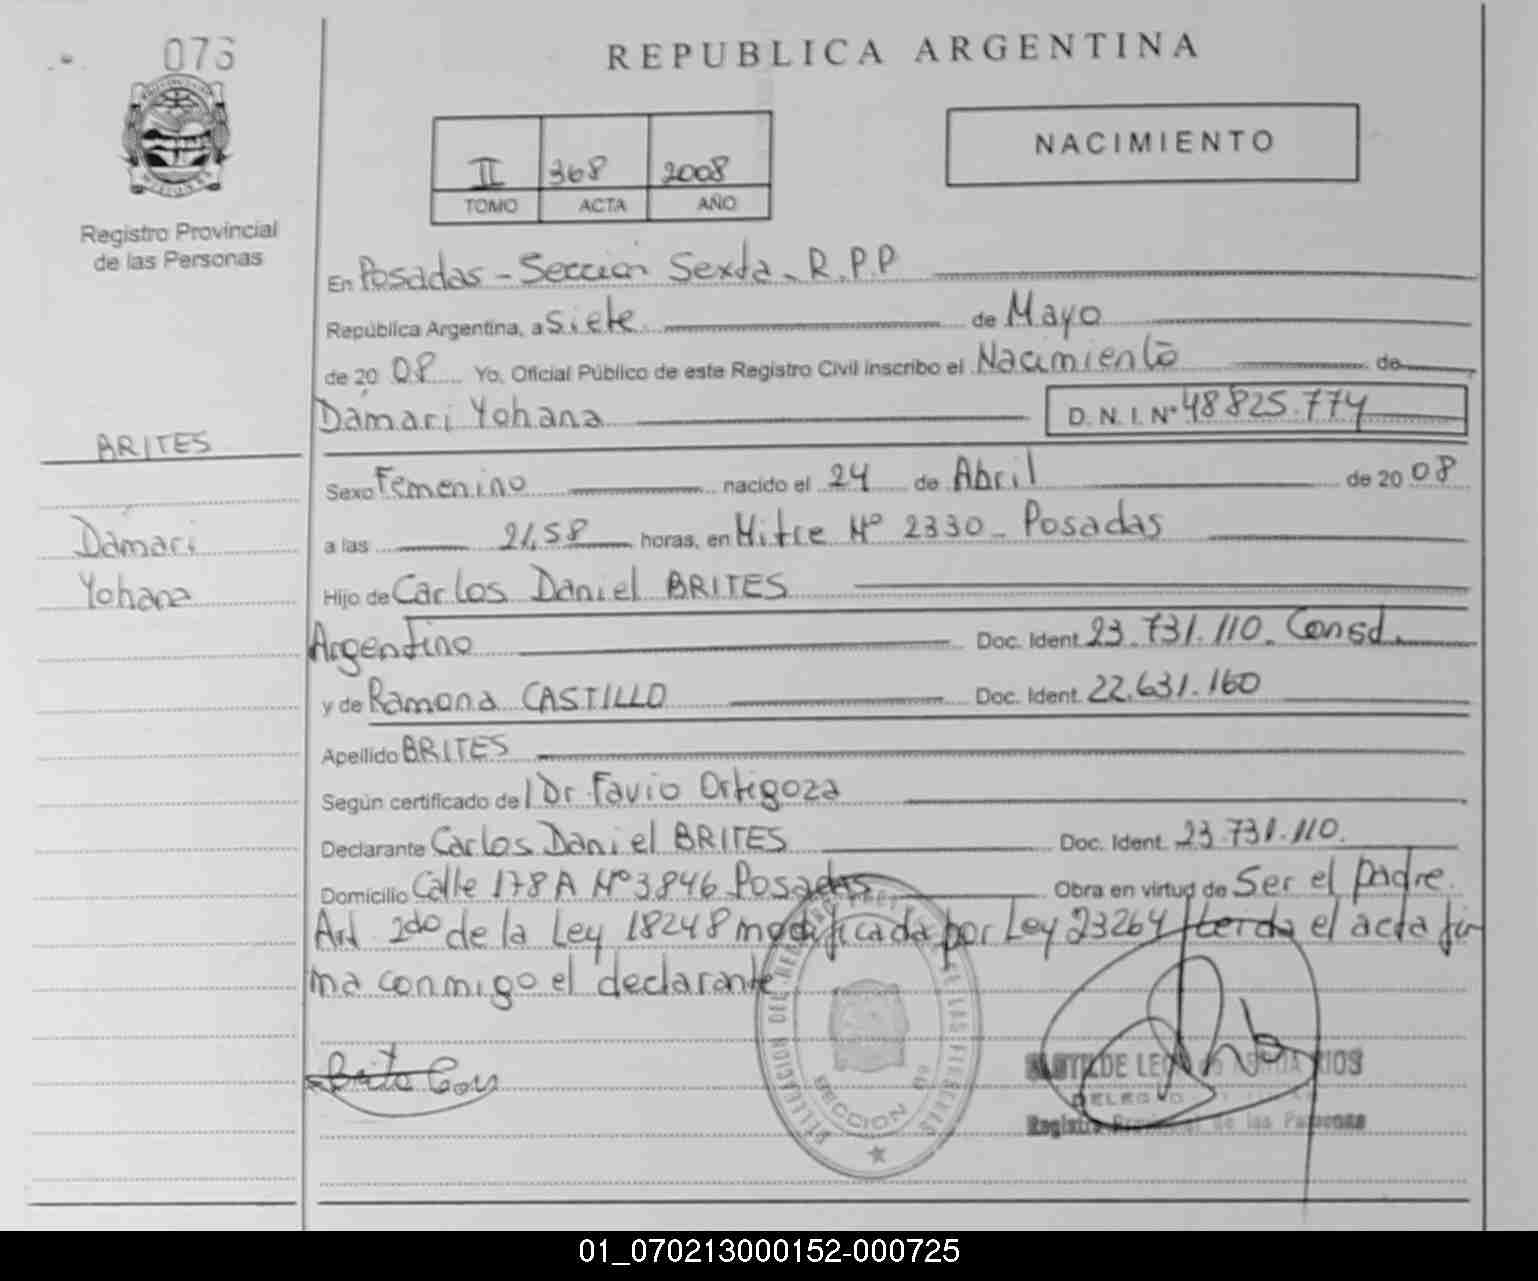 076
REPUBLICA ARGENTINA
II 368 2008
TOMO ACTA AÑO
NACIMIENTO
Registro Provincial
de las Personas
En Posadas - Sección Sexta - R.P.P
República Argentina, a Siete de Mayo
de 20 08 Yo, Oficial Público de este Registro Civil inscribo el Nacimiento de
Dámari Yohana D. N. I. Nº 48825.774
BRITES
Dámari
Yohana
Sexo Femenino nacido el 24 de Abril de 20 08
a las 21,58 horas, en Mitre Nº 2330 - Posadas
Hijo de Carlos Daniel BRITES
Argentino Doc. Ident. 23.731.110. Consd.
y de Ramona CASTILLO Doc. Ident. 22.631.160
Apellido BRITES
Según certificado del Dr Favio Ortigoza
Declarante Carlos Daniel BRITES Doc. Ident. 23.731.110.
Domicilio Calle 178 A Nº 3846 Posadas Obra en virtud de Ser el padre.
Art 2do de la Ley 18248 modificada por Ley 23264 el acta fir
ma conmigo el declarante
SECCION
DE
Registro Provincial de las Personas
01_070213000152-000725